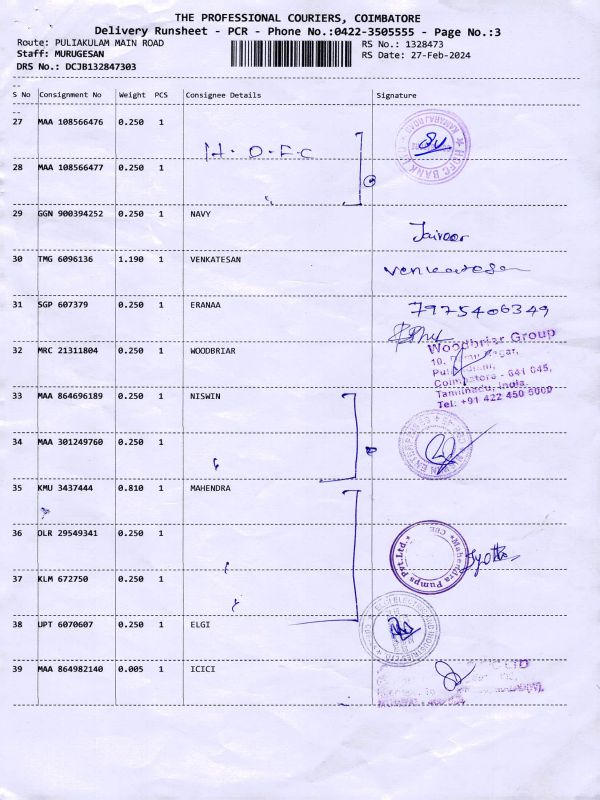 THE PROFESSIONAL COURIERS, COIMBATORE
Delivery Runsheet - PCR - Phone No.:0422-3505555 - Page No.:3
Route: PULIAKULAM MAIN ROAD RS No.: 1328473
Staff: MURUGESAN RS Date: 27-Feb-2024
DRS No.: DCJB132847303
S No Consignment No Weight PCS Consignee Details Signature
27 MAA 108566476 0.250 1
H.D.F.C
HDFC BANK
28 MAA 108566477 0.250 1
29 GGN 900394252 0.250 1 NAVY
30 TMG 6096136 1.190 1 VENKATESAN
venkatesan
31 SGP 607379 0.250 1 ERANAA 7975406349
Woodbriar Group
32 MRC 21311804 0.250 1 WOODBRIAR
Coimbatore - 641 045,
Tamilnadu, India.
Tel: +91 422 450 5000
33 MAA 864696189 0.250 1 NISWIN
34 MAA 301249760 0.250 1
35 KMU 3437444 0.810 1 MAHENDRA
36 DLR 29549341 0.250 1
Mahendra Pumps Pvt.Ltd.,
CBE
37 KLM 672750 0.250 1
38 UPT 6070607 0.250 1 ELGI
39 MAA 864982140 0.005 1 ICICI